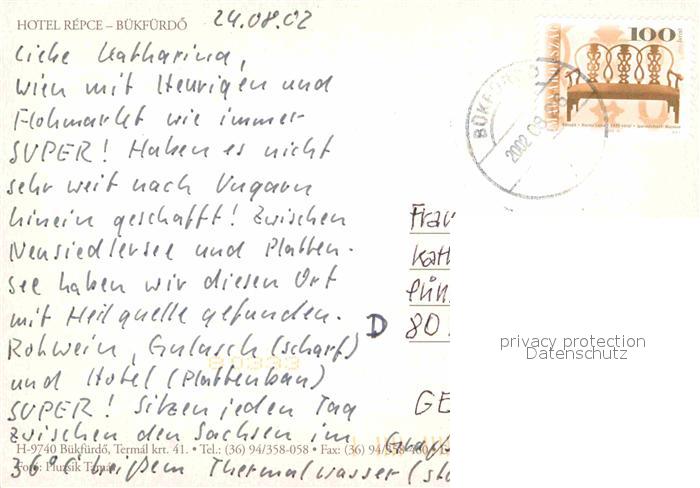 HOTEL RÉPCE – BÜKFÜRDŐ
24.08.02
Liebe Katharina,
Wien mit Heurigen und
Flohmarkt wie immer
SUPER! Haben es nicht
sehr weit nach Ungarn
hinein geschafft! Zwischen
Neusiedlersee und Platten-
see haben wir diesen Ort
mit Heilquelle gefunden.
Rohwein, Gulasch (scharf)
und Hotel (Plattenbau)
SUPER! Sitzen jeden Tag
zwischen den Sachsen im
36° heißem Thermalwasser
H-9740 Bükfürdő, Termál krt. 41. • Tel.: (36) 94/358-058 • Fax: (36) 94/358-
Fotó: Pluzsik Tamás
100
MAGYARORSZÁG
BÜKFÜRDŐ
2002 08
Frau
Kath
D 80
GE
privacy protection
Datenschutz